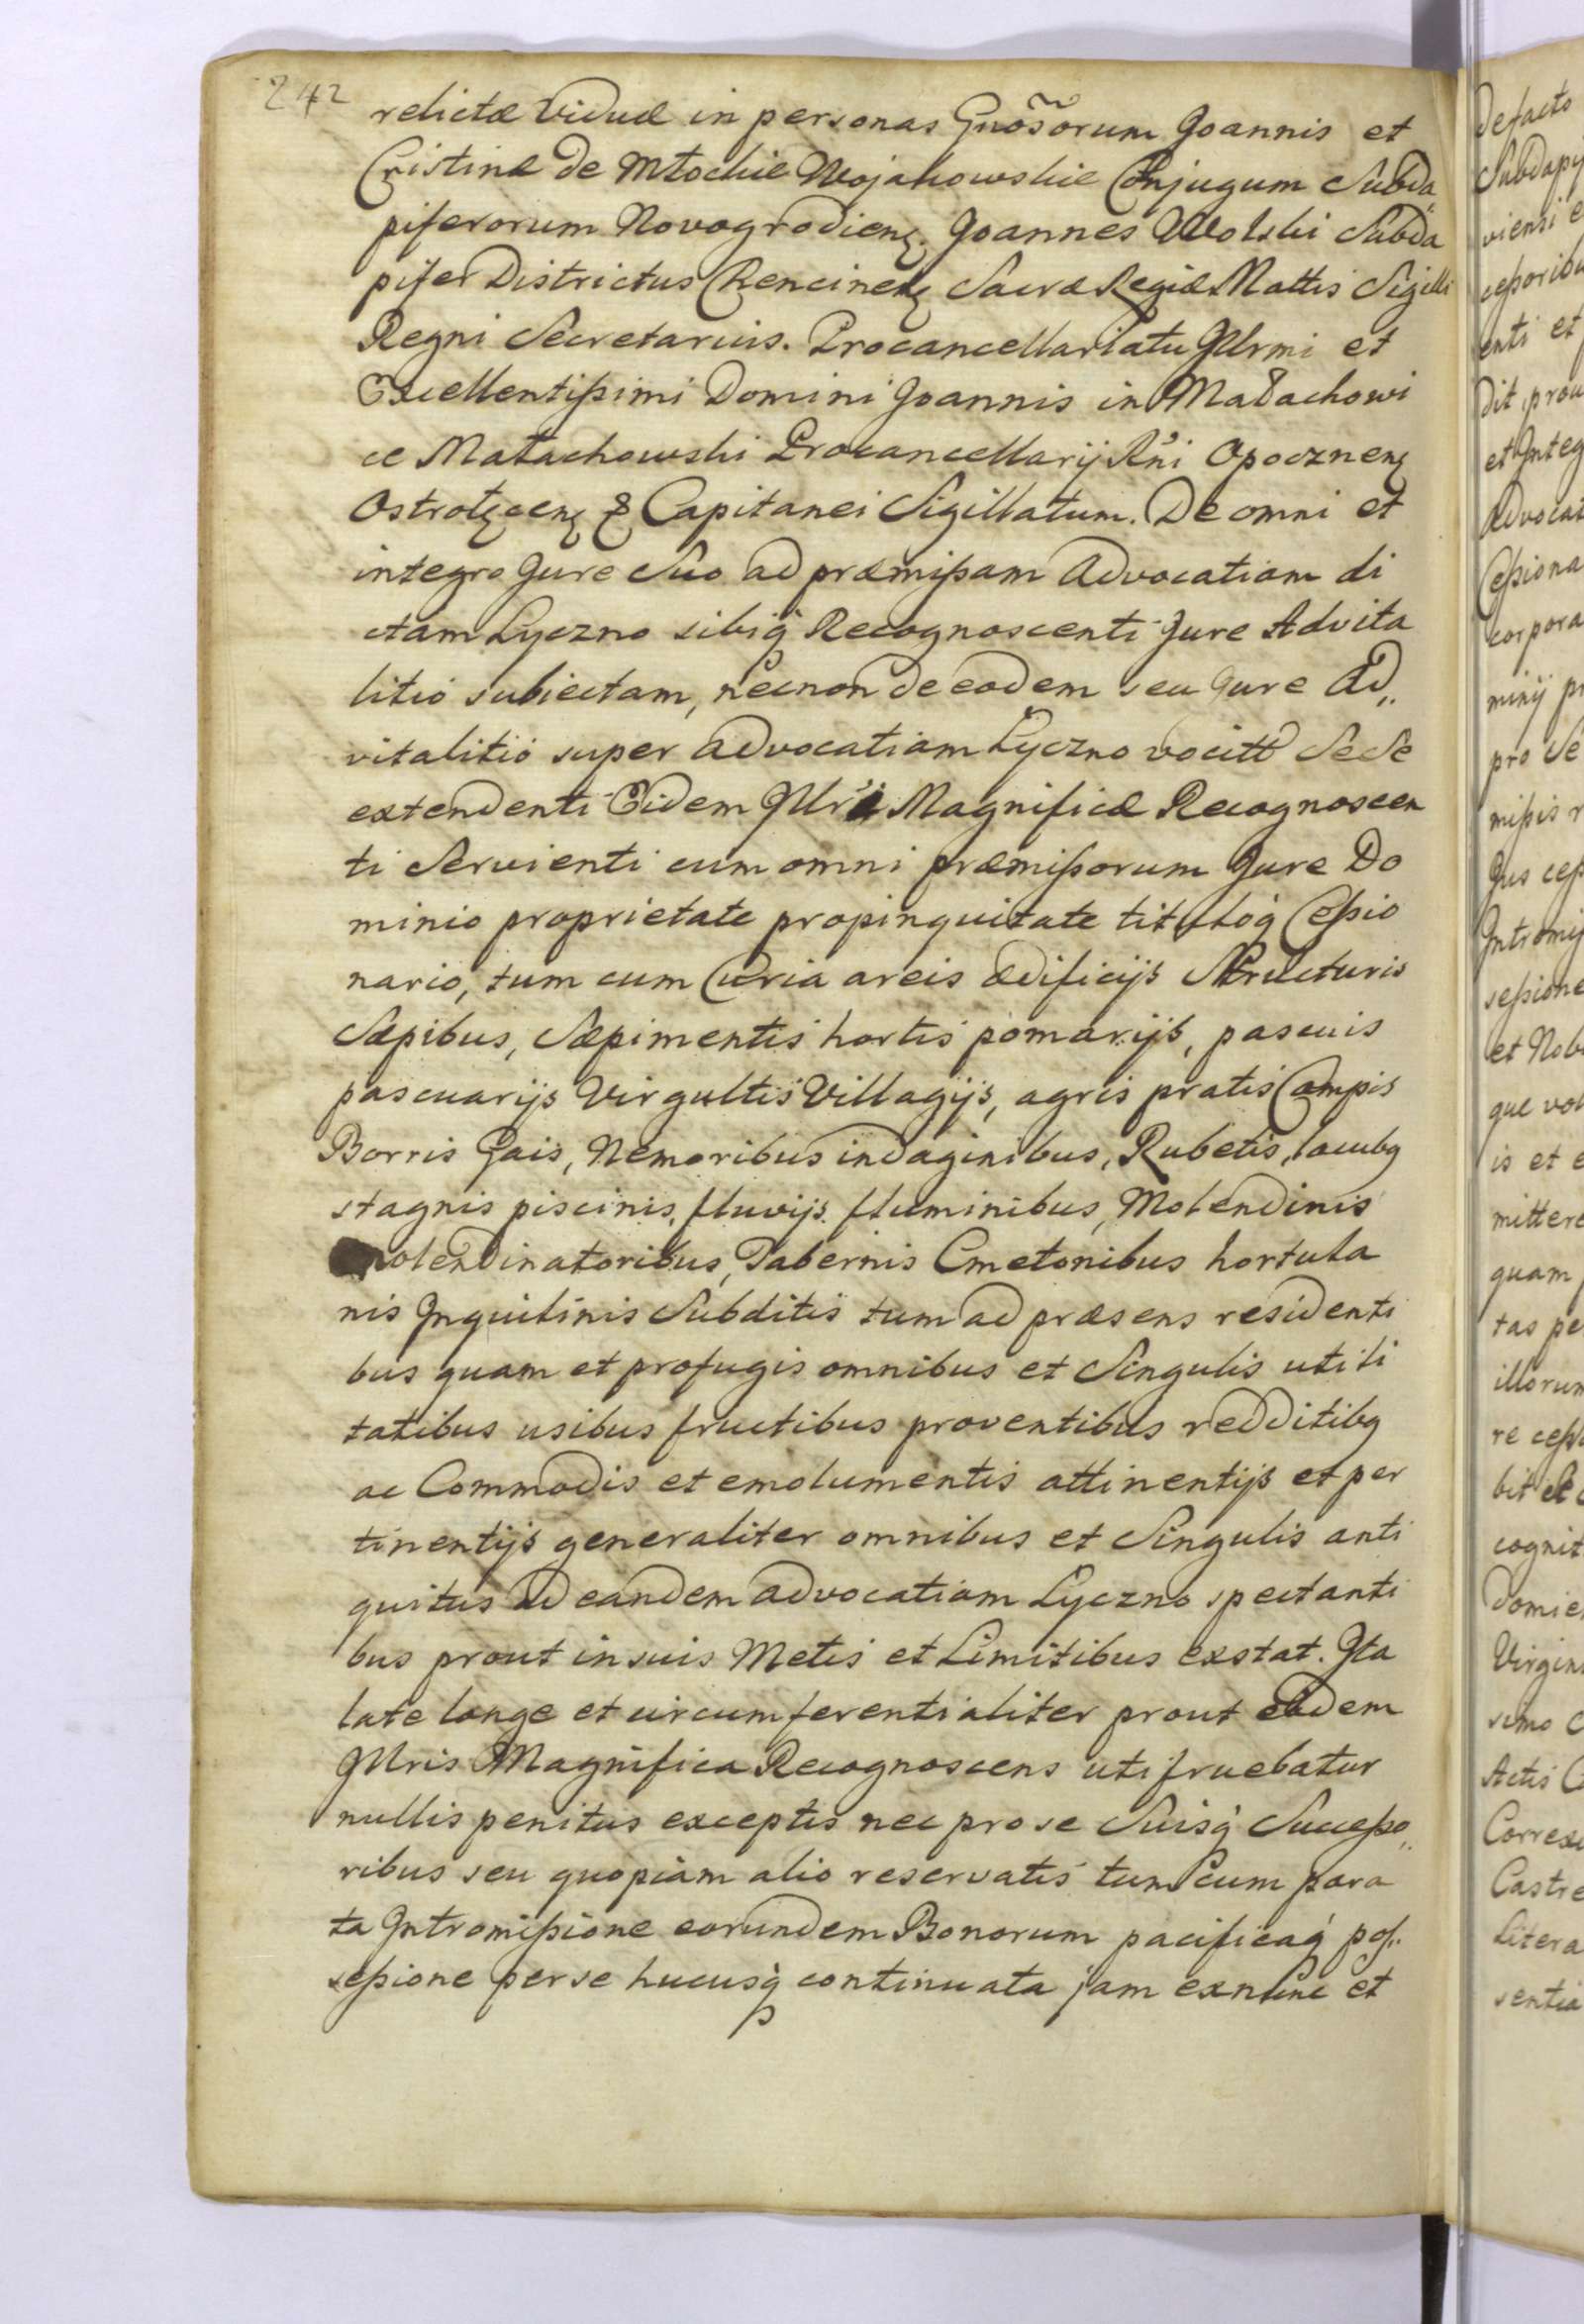 242
relictæ Viduæ in personas Gnõsorum Joannis et
Cristinæ de Młockie Wojakowskie Conjugum Subda„
piferorum Novogrodiens. Joannes Wolski Subda
pifer Districtus Rencinens Sacræ Regiæ Mattis Sigilli
Regni Secretarius. Procancellariatu Jllrmi et
Excellentißimi Domini Joannis in Małachowi
ce Małachowski Procancellarij Rñi Opocznens
Ostrołęcens & Capitanei Sigillatum. De omni et
integro Jure Suo ad præmißam Advocatiam di
ctam Lyczno sibiq Recognoscenti Jure Advita
litio subiectam, necnon de eodem seu Jure Ad„
vitalitio super advocatiam Lyczno vocitt Sese
extendenti Eidem Jllri Magnificæ Recognoscen
ti Servienti cum omni præmißorum Jure Do
minio proprietate propinquitate tituloq Ceßio
nario, tum cum Curia areis ædificijs Structuris
Sæpibus, Sæpimentis hortis pomarijs, pascuis
pascuarijs Virgultis Villagijs, agris pratis Campis
Borris Gais, Nemoribus indaginibus, Rubetis, lacubq
stagnis piscinis, fluvijs fluminibus, Molendinis
Molendinatoribus, Tabernis Cmetonibus hortula
nis Jnquilinis Subditis tum ad præsens residenti
bus quam et profugis omnibus et Singulis utili
tatibus usibus fructibus proventibus redditibq
ac Commodis et emolumentis attinentijs et per
tinentijs generaliter omnibus et Singulis anti
quitus ad eandem advocatiam Lyczno spectanti
bus prout in suis Metis et Limitibus exstat. Jta
late longe et circumferentialiter prout eadem
Jllris Magnifica Recognoscens utifruebatur
nullis penitus exceptis nec pro se Suisq Succeßo„
ribus seu quopiam alio reservatis tum cum para
ta Jntromißione eorundem Bonorum pacificaq pos„
seßione per se hucusq continuata jam exnunc et